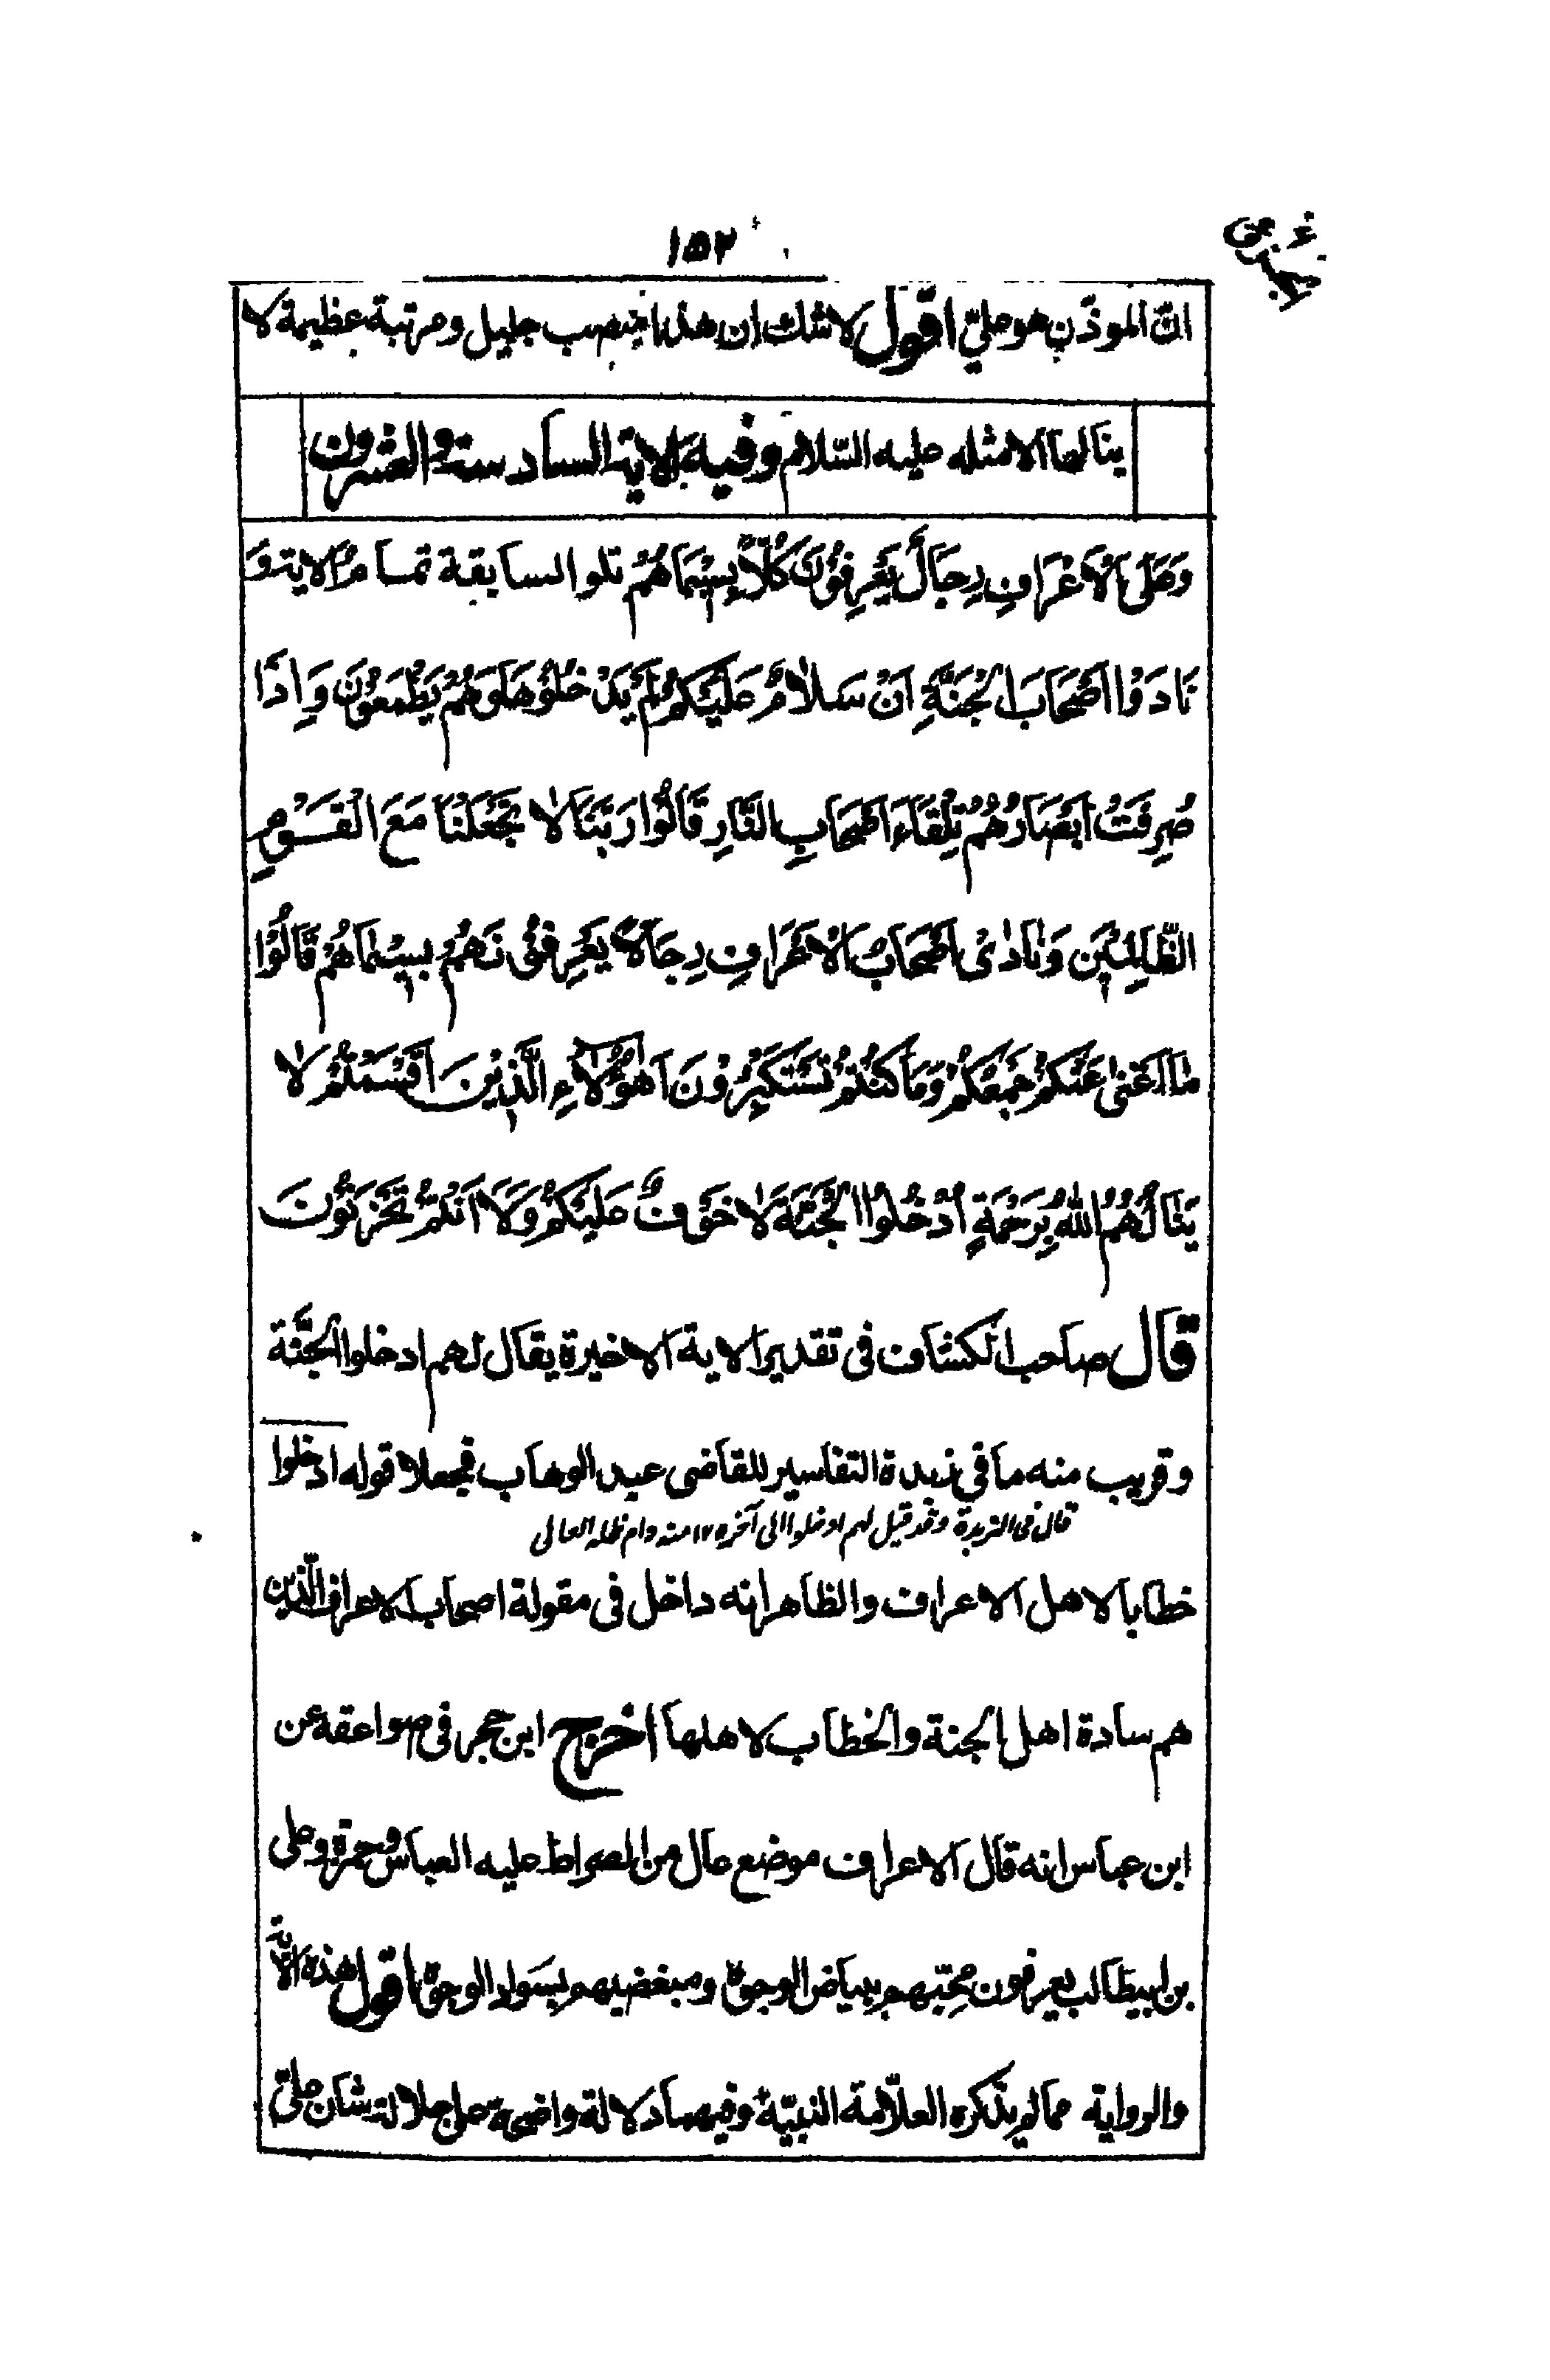 ١٥٢
انّ الموذّن هو عليّ اقول لا شك ان هذا منصب جليل ومرتبة عظيمة لا
ينالها الا مثله عليه السّلام وفيه الاية السادسة والعشرون
وَعَلَى الْاَعْرَافِ رِجَالٌ يَعْرِفُوْنَ كُلًّا بِسِيْمَاهُمْ تلو السابقة تمام الاية وَ
نَادَوْا اَصْحَابَ الْجَنَّةِ اَنْ سَلَامٌ عَلَيْكُمْ لَمْ يَدْخُلُوْهَا وَهُمْ يَطْمَعُوْنَ وَاِذَا
صُرِفَتْ اَبْصَارُهُمْ تِلْقَاءَ اَصْحَابِ النَّارِ قَالُوْا رَبَّنَا لَا تَجْعَلْنَا مَعَ الْقَوْمِ
الظَّالِمِيْنَ وَنَادٰى اَصْحَابُ الْاَعْرَافِ رِجَالًا يَعْرِفُوْنَهُمْ بِسِيْمَاهُمْ قَالُوْا
مَا اَغْنٰى عَنْكُمْ جَمْعُكُمْ وَمَا كُنْتُمْ تَسْتَكْبِرُوْنَ اَهٰؤُلَاءِ الَّذِيْنَ اَقْسَمْتُمْ لَا
يَنَالُهُمُ اللّٰهُ بِرَحْمَةٍ اُدْخُلُوا الْجَنَّةَ لَا خَوْفٌ عَلَيْكُمْ وَلَا اَنْتُمْ تَحْزَنُوْنَ
قال صاحب الكشاف فى تقدير الاية الاخيرة يقال لهم ادخلوا الجنّة
وقريب منه ما في زبدة التفاسير للقاضى عبد الوهاب فجعلا قوله ادخلوا
قال فى الزبدة وقد قيل لهم ادخلوا الى آخره ١٢ منه دام ظله العالى
خطابا لاهل الاعراف والظاهر انه داخل فى مقولة اصحاب الاعراف الّذين
هم سادة اهل الجنة والخطاب لاهلها اخرج ابن حجر فى صواعقه عن
ابن عباس انه قال الاعراف موضع عال من الصراط عليه العباس وحمزة وعلى
بن ابيطالب يعرفون محبّيهم ببياض الوجوه ومبغضيهم بسواد الوجوه اقول هذه الآية
والرواية مما لم يذكره العلّامة وفيهما دلالة واضحة على جلالة شان عليّ